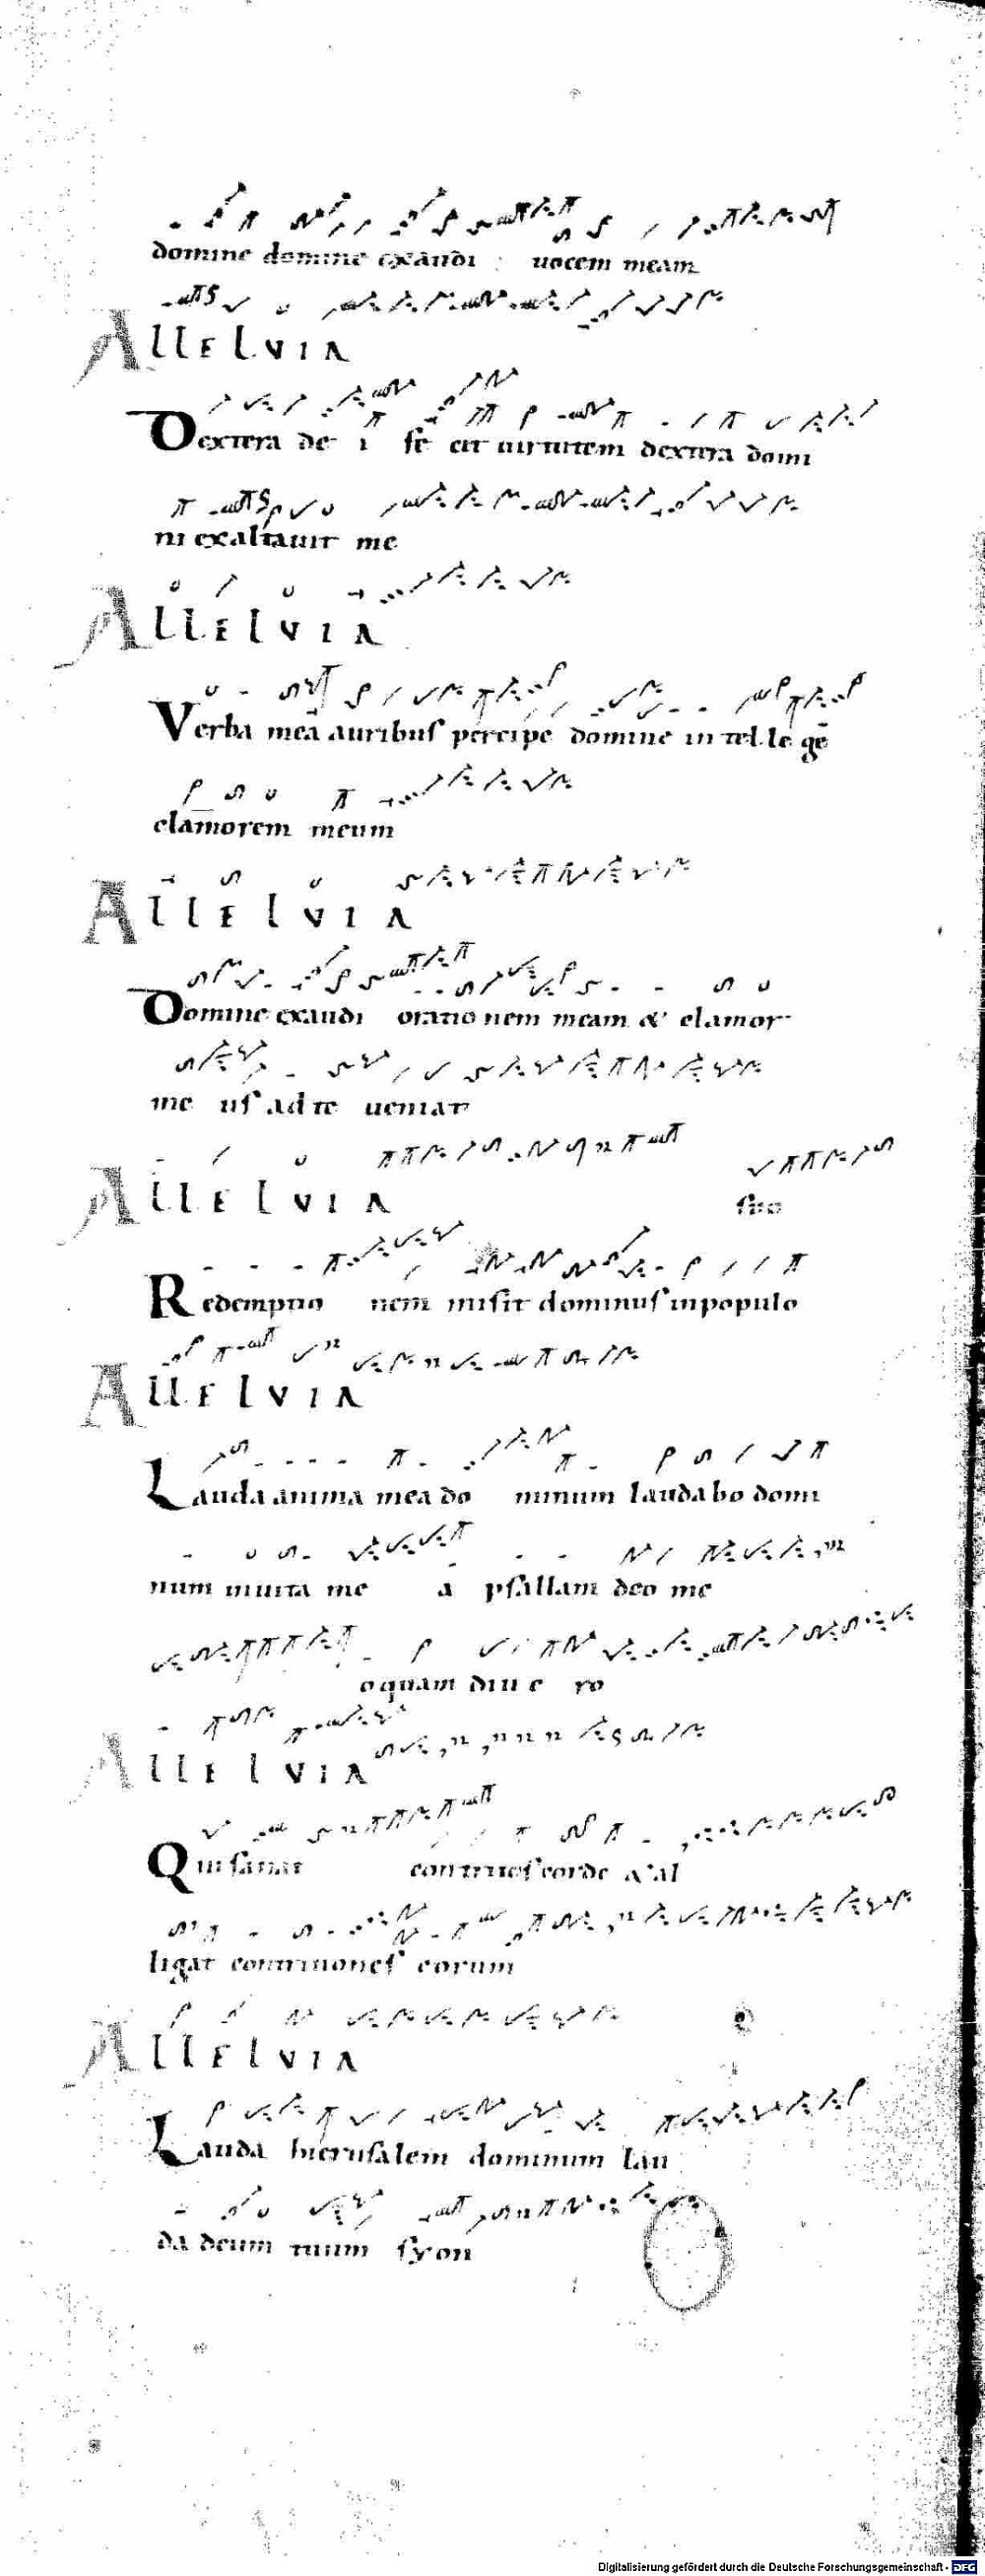 domine domine exaudi uocem meam
ALLELVIA
Dextera de i fe cit uirtutem dextera domi
ni exaltauit me
ALLELVIA
Verba mea auribus percipe domine intellege
clamorem meum
ALLELVIA
Domine exaudi orationem meam & clamor
me us ad te ueniat
ALLELVIA suo
Redemptio nem misit dominus in populo
ALLELVIA
Lauda anima mea do minum laudabo domi
num inuita me a psallam deo me
o quam diu e ro
ALLELVIA
Qui sanat contritos corde & al
ligat contritiones eorum
ALLELVIA
Lauda hierusalem dominum lau
da deum tuum syon
Digitalisierung gefördert durch die Deutsche Forschungsgemeinschaft - DFG